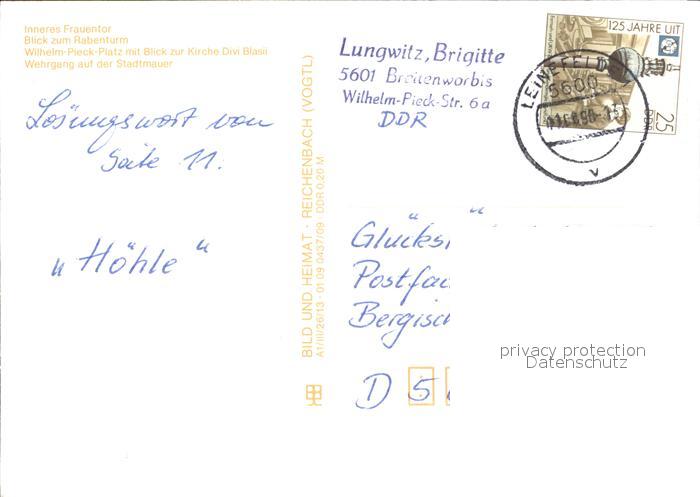 Inneres Frauentor
Blick zum Rabenturm
Wilhelm-Pieck-Platz mit Blick zur Kirche Divi Blasii
Wehrgang auf der Stadtmauer
Lösungswort von
Seite 11.
„Höhle“
BILD UND HEIMAT · REICHENBACH (VOGTL)
A1/III/26/13 · 01 09 0437/09 · DDR 0,20 M
Lungwitz, Brigitte
5601 Breitenworbis
Wilhelm-Pieck-Str. 6a
DDR
125 JAHRE UIT
25
DDR
LEINEFELDE
5600
v
Glücks
Postfac
Bergisch
D 5
privacy protection
Datenschutz